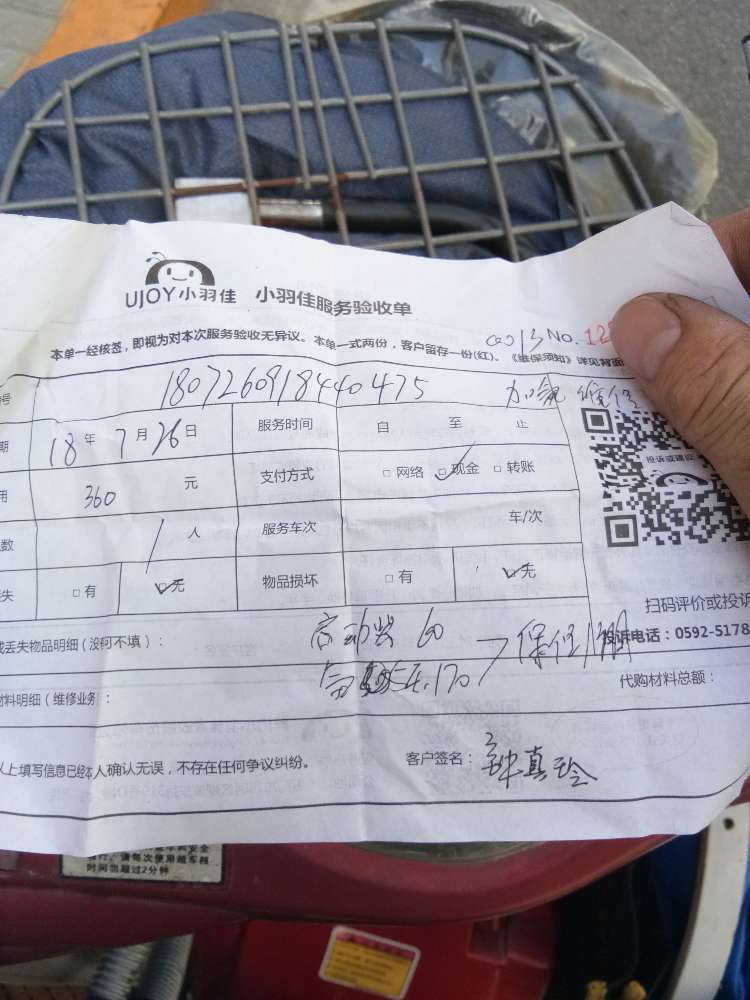 UJOY小羽佳 小羽佳服务验收单
本单一经核签，即视为对本次服务验收无异议。本单一式两份，客户留存一份(红)。《维保须知》详见背面
No. 12
号 1807260918440475 加氟 维修
期 18年7月26日 服务时间 自 至 止
用 360 元 支付方式 □网络 □现金 □转账
投诉或建议
数 1 人 服务车次 车/次
失 □有 □无 物品损坏 □有 □无
扫码评价或投诉
或丢失物品明细（没有可不填）： 启动器 60
投诉电话：0592-5178
170 保修
材料明细（维修业务）：
代购材料总额：
以上填写信息已经本人确认无误，不存在任何争议纠纷。
客户签名：钟真玲
请每次使用超车档
时间勿超过2分钟